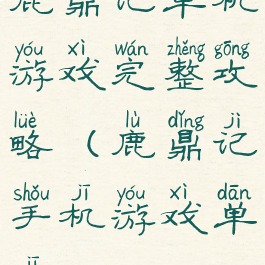 鹿鼎记单机
yóu xì wán zhěng gōng
游戏完整攻
lüè lù dǐng jì
略(鹿鼎记
shǒu jī yóu xì dān
手机游戏单
jī